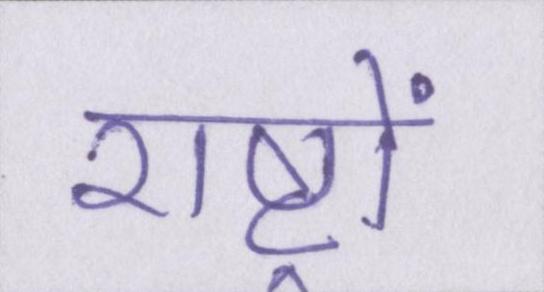 राष्ट्रों